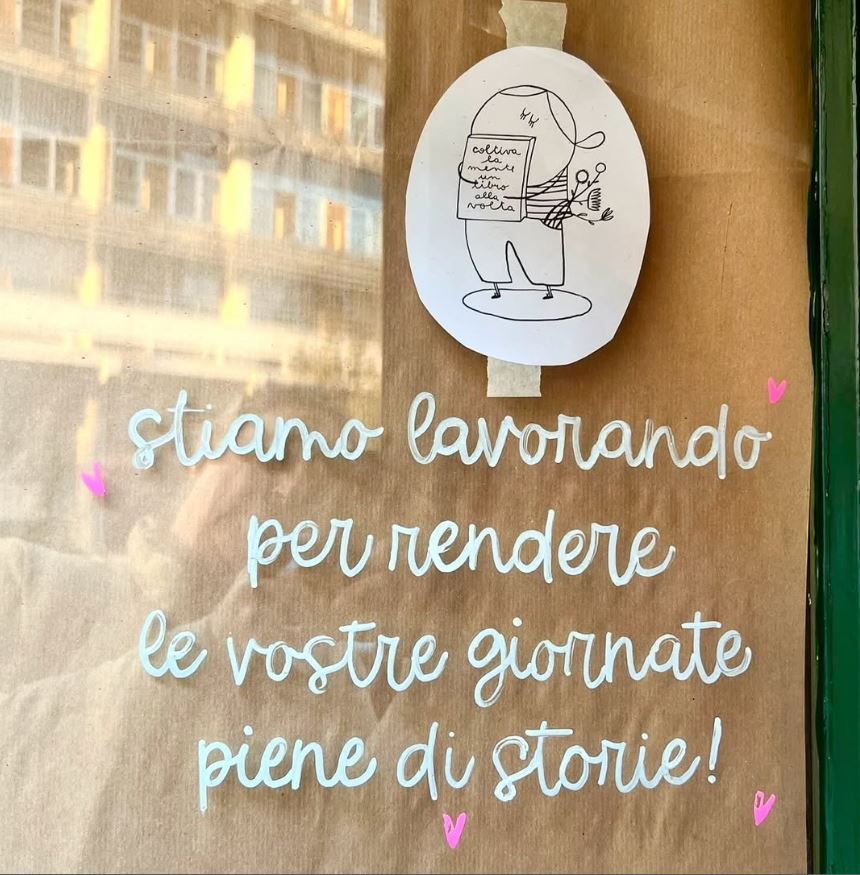 coltiva
la
mente
un
libro
alla
volta
stiamo lavorando
per rendere
le vostre giornate
piene di storie!